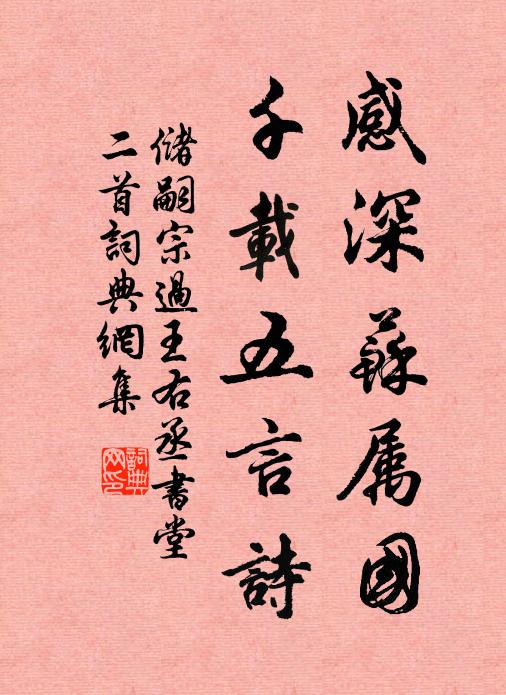 感深蘇属國
千載五言詩
儲嗣宗過王右丞書堂
二首詞典網集
詞典网印